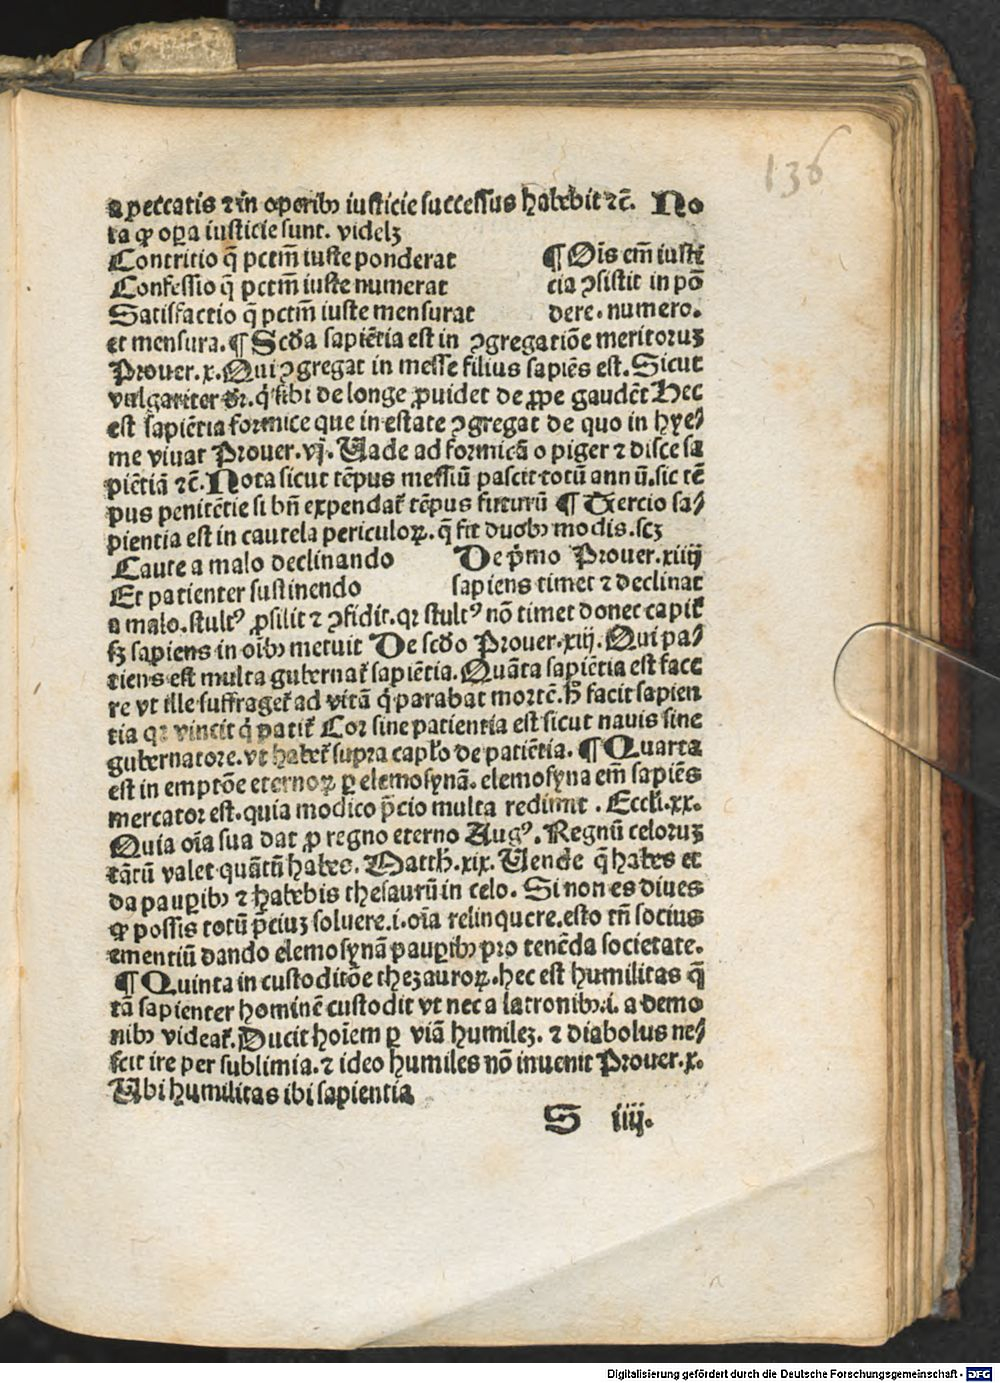 136
a peccatis ⁊ in operibꝰ iusticie successus habebit ⁊c̄. No
ta ꝙ oꝑa iusticie sunt. videlꝫ
Contritio q̄ pctm̄ iuste ponderat ¶ Oīs em̄ iusti
Confessio q̄ pctm̄ iuste numerat cia ꝯsistit in pō
Satisfactio q̄ pctm̄ iuste mensurat dere. numero.
et mensura. ¶ Scḋa sapiētia est in ꝯgregatiōe meritoruꝫ
Prouer. x. Qui ꝯgregat in messe filius sapiēs est. Sicut
vulgariter dr̄. q̇ sibi de longe ꝓuidet de ꝓpe gaudēt Hec
est sapiētia formice que in estate ꝯgregat de quo in hye⸗
me viuat Prouer. vj. Uade ad formicā o piger ⁊ disce sa
piētiā ⁊c̄. Nota sicut tēpus messiū pascit totū annū. sic tē
pus penitētie si bn̄ expendat᷑ tēpus futurū ¶ Tercio sa⸗
pientia est in cautela periculoꝝ. q̄ fit duobꝰ modis. scꝫ
Caute a malo declinando De p̄mo Prouer. xiiij
Et patienter sustinendo sapiens timet ⁊ declinat
a malo. stultꝰ ꝓsilit ⁊ ꝯfidit. qꝛ stultꝰ nō timet donec capit᷑
sꝫ sapiens in oībꝰ metuit De scḋo Prouer. xiij. Qui pa⸗
tiens est multa gubernat᷑ sapiētia. Quāta sapiētia est face
re vt ille suffraget᷑ ad vitā q̇ parabat mortē. h̄ facit sapien
tia qꝛ vincit q̇ patit᷑ Cor sine patientia est sicut nauis sine
gubernatore. vt habet᷑ supra caplo de patiētia. ¶ Quarta
est in emptōe eternoꝝ ꝑ elemosynā. elemosyna em̄ sapiēs
mercator est. quia modico p̄cio multa redimit. Eccli. xx.
Quia oīa sua dat ꝓ regno eterno Augꝰ. Regnū celoruꝫ
tātū valet quātū habes. Matth. xix. Uende q̄ habes et
da pauꝑibꝰ ⁊ habebis thesaurū in celo. Si non es diues
ꝙ possis totū p̄ciuꝫ soluere. i. oīa relinquere. esto tn̄ socius
ementiū dando elemosynā pauꝑibꝰ pro tenēda societate.
¶ Quinta in custoditōe thezauroꝝ. hec est humilitas q̄
tā sapienter hominē custodit vt nec a latronibꝰ. i. a demo
nibꝰ videat᷑. Ducit hoīem ꝑ viā humileꝫ. ⁊ diabolus ne⸗
scit ire per sublimia. ⁊ ideo humiles nō inuenit Prouer. x.
Ubi humilitas ibi sapientia
S iiij.
Digitalisierung gefördert durch die Deutsche Forschungsgemeinschaft - DFG